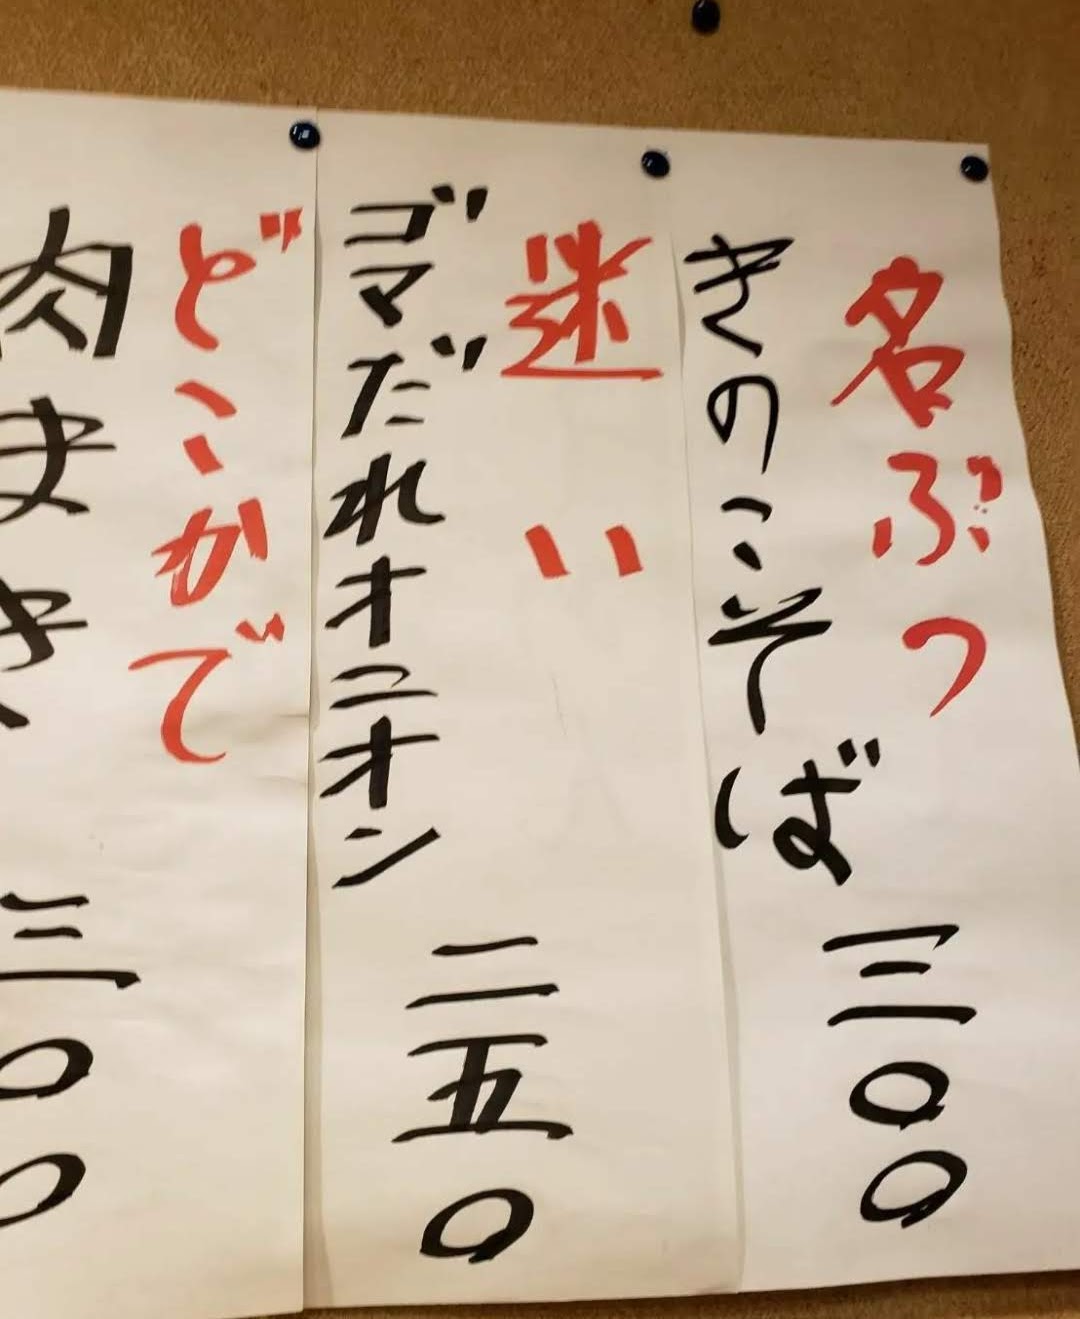 名ぶつ
きのこそば 三〇〇
迷い
ゴマだれオニオン 二五〇
どこかで
肉まき 三〇〇